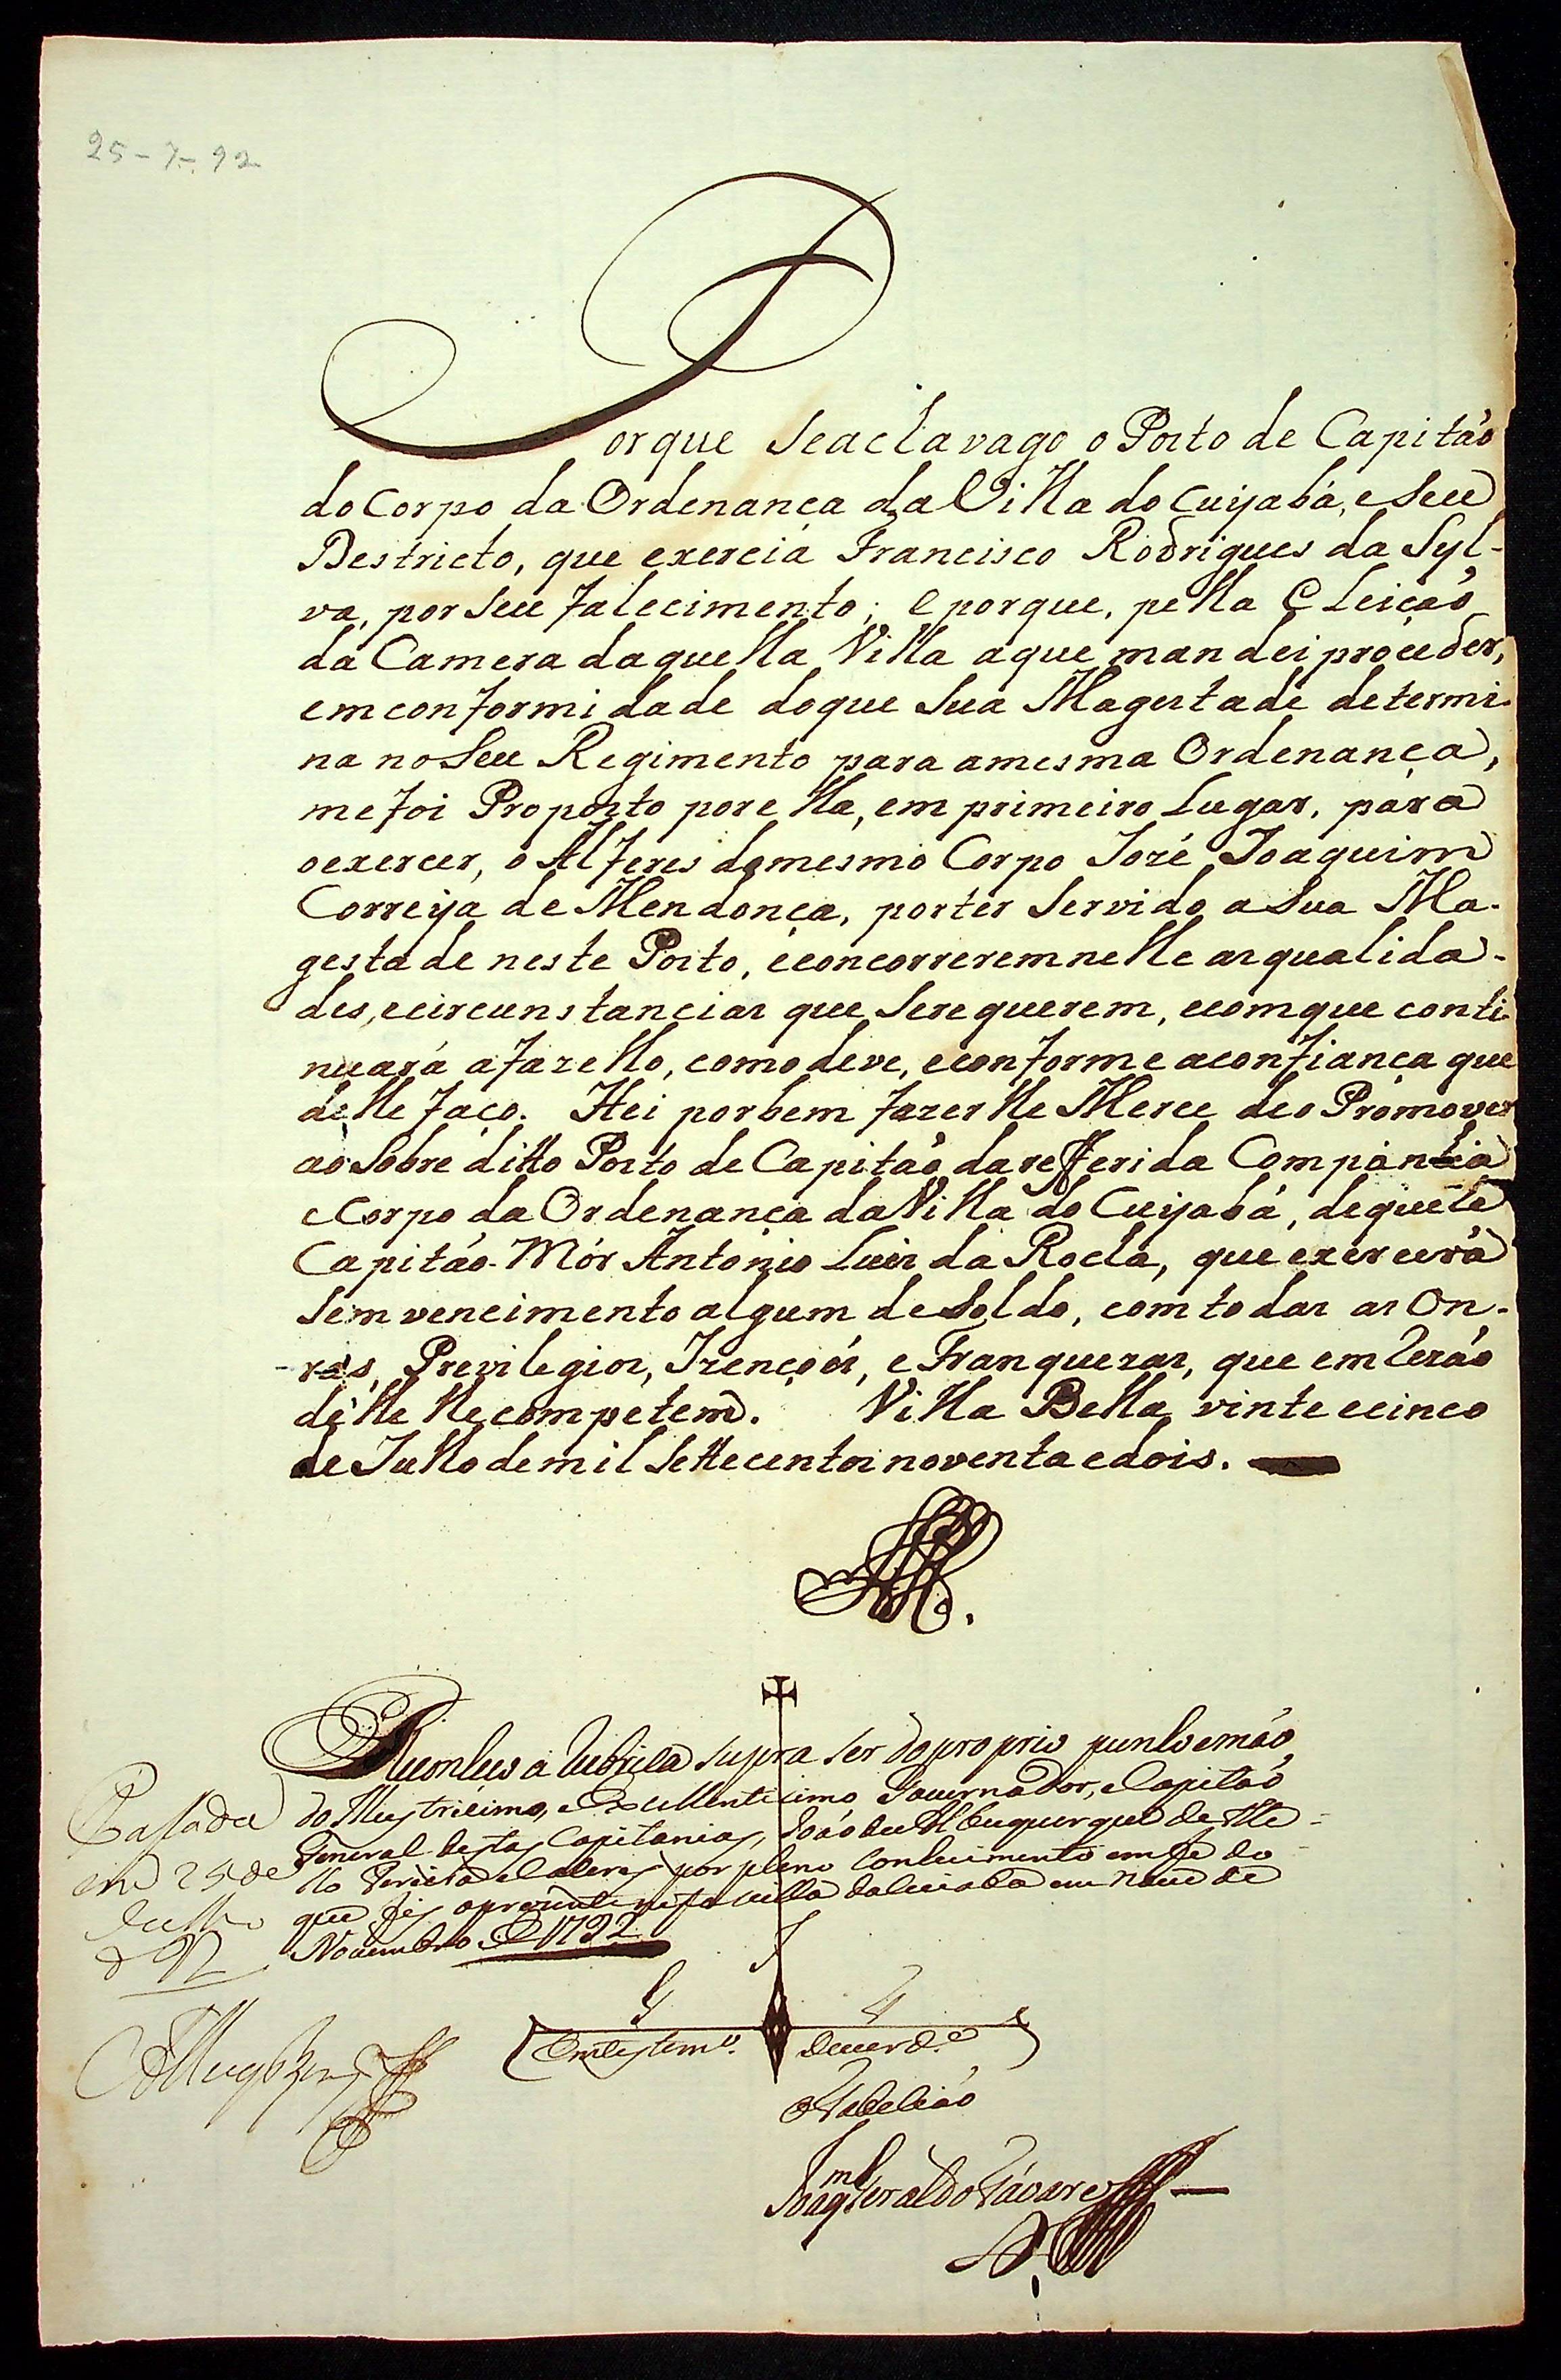 25-7-92
Porque se acha vago o Posto de Capitão
do Corpo da Ordenança da Villa do Cuyabá, e Seu
Destricto, que exercia Francisco Rodrigues da Syl-
va, por seu falecimento; e porque, pella Eleição
da Camera daquella Villa aque mandei proceder,
em conformidade doque Sua Magestade determi-
na no Seu Regimento para amesma Ordenança,
me foi Proposto por ella, em primeiro Lugar, para
oexercer, o Alferes domesmo Corpo José Joaquim
Correya de Mendonça, por ter Servido a Sua Ma-
gestade neste Posto, econcorrerem nelle as qualida-
des, ecircunstancias que Serequerem, ecomque conti-
nuará afazello, como deve, econforme aconfiança que
delle faço. Hei por bem fazerlhe Merce deo Promover
ao Sobreditto Posto de Capitão da refferida Companhia
eCorpo da Ordenança da Villa do Cuyabá, de que he
Capitão-Mór Antonio Luis da Rocha, que exercerá
Sem vencimento algum de Soldo, com todas as On-
ras, Previlegios, Izenções, e Franquezas, que em rezão
delle lhe competem. Villa Bella vinte ecinco
de Julho de mil Settecentos noventa edois.
Reconheço a rubrica supra ser do proprio punho emão
do Illustricimo, e Excellenticimo Governador, e Capitão
General destas Capitanias, João de Albuquerque de Me-
llo Pereira e Caceres por pleno conhecimento em fé do
que fiz o prezente nesta villa do Cuiaba em nove de
Novembro de 1792
Pasada
em 25 de
Julho
de 92
Em testem.º de verd.e
O Tabelião
Joaqm Geraldo Tavares